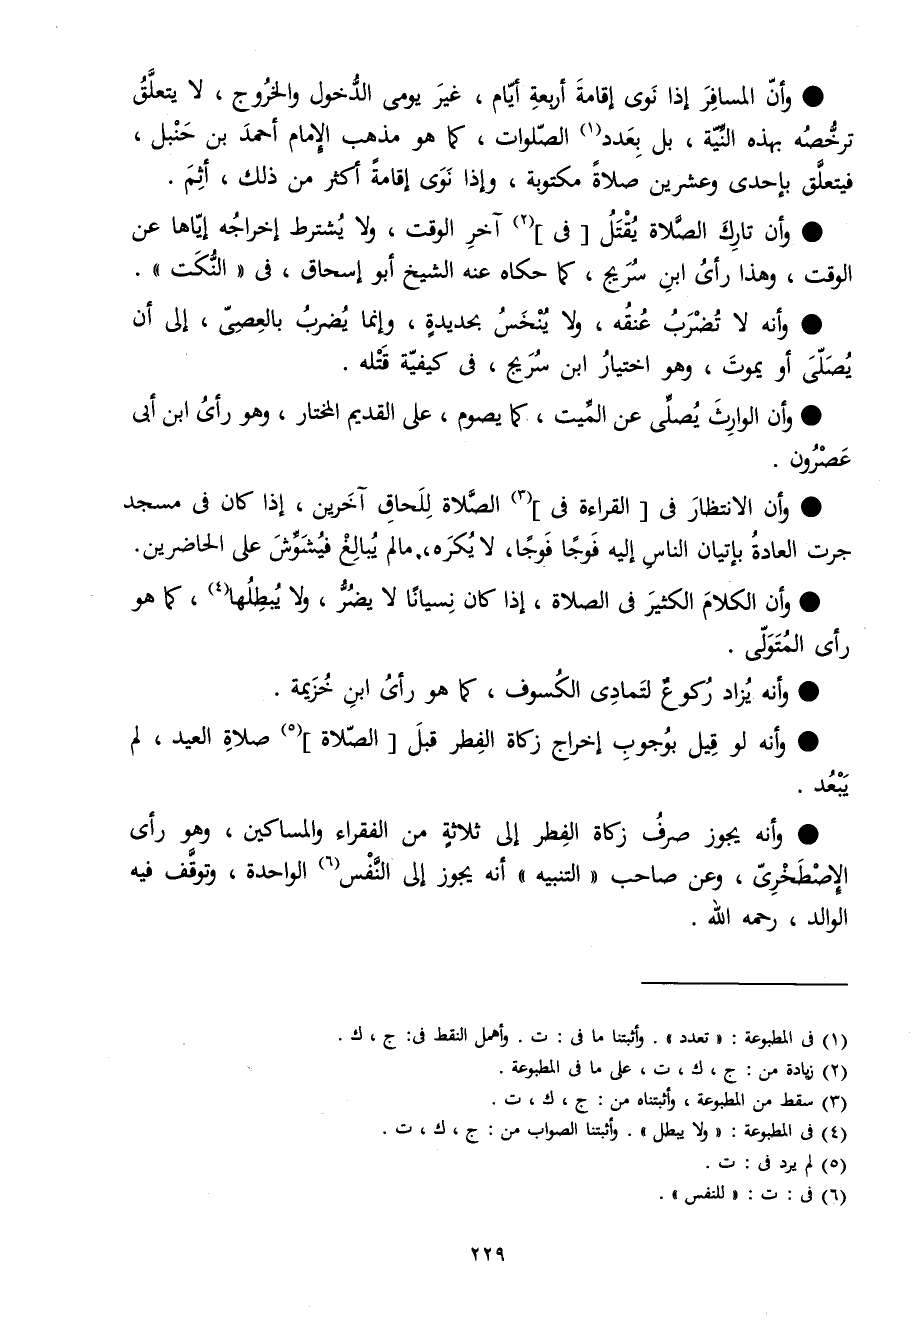 ● وأنّ المسافِرَ إذا نَوى إقامةَ أربعةِ أيّام ، غيرَ يومى الدُّخول والخرُوج ، لا يتعلَّقُ
ترخُّصُه بهذه النِّيّة ، بل بِعَدد(١) الصّلوات ، كما هو مذهب الإِمام أحمدَ بن حَنْبل ،
فيتعلَّق بإحدى وعشرين صلاةً مكتوبة ، وإذا نَوَى إقامةً أكثر من ذلك ، أثِمَ .
● وأن تارِكَ الصَّلاة يُقْتَلُ [ فى ](٢) آخرِ الوقت ، ولا يُشترط إخراجُه إيّاها عن
الوقت ، وهذا رأىُ ابنِ سُرَيج ، كما حكاه عنه الشيخ أبو إسحاق ، فى « النُّكَت » .
● وأنه لا تُضْرَبُ عُنقُه ، ولا يُنْخَسُ بحديدةٍ ، وإنما يُضربُ بالعِصىّ ، إلى أن
يُصَلّىَ أو يموتَ ، وهو اختيارُ ابن سُرَيج ، فى كيفيّة قَتْله .
● وأن الوارِثَ يُصلِّى عن المِّيت ، كما يصوم ، على القديم المختار ، وهو رأىُ ابن أبى
عَصْرُون .
● وأن الانتظارَ فى [ القراءة فى ](٣) الصَّلاة لِلَحاقِ آخَرين ، إذا كان فى مسجد
جرت العادةُ بإتيان الناسِ إليه فَوجًا فَوجًا، لا يُكرَه، مالم يُبالِغْ فيُشَوِّشَ على الحاضرين.
● وأن الكلامَ الكثيرَ فى الصلاة ، إذا كان نِسيانًا لا يضرُّ ، ولا يُبطِلُها(٤) ، كما هو
رأى المُتَوَلّى .
● وأنه يُزاد رُكوعٌ لتَمادِى الكُسوف ، كما هو رأىُ ابنِ خُزَيمة .
● وأنه لو قِيل بوُجوبِ إخراج زكاة الفِطر قبلَ [ الصّلاة ](٥) صلاةِ العيد ، لم
يَبْعُد .
● وأنه يجوز صرفُ زكاة الفِطر إلى ثلاثةٍ من الفقراء والمساكين ، وهو رأى
الإِصْطَخْرِىّ ، وعن صاحب « التنبيه » أنه يجوز إلى النَّفْس(٦) الواحدة ، وتوقَّف فيه
الوالد ، رحمه الله .
(١) فى المطبوعة : « تعدد » . وأثبتنا ما فى : ت . وأهمل النقط فى: ج ، ك .
(٢) زيادة من : ج ، ك ، ت ، على ما فى المطبوعة .
(٣) سقط من المطبوعة ، وأثبتناه من : ج ، ك ، ت .
(٤) فى المطبوعة : « ولا يبطل » . وأثبتنا الصواب من : ج ، ك ، ت .
(٥) لم يرد فى : ت .
(٦) فى : ت : « للنفس » .
٢٢٩